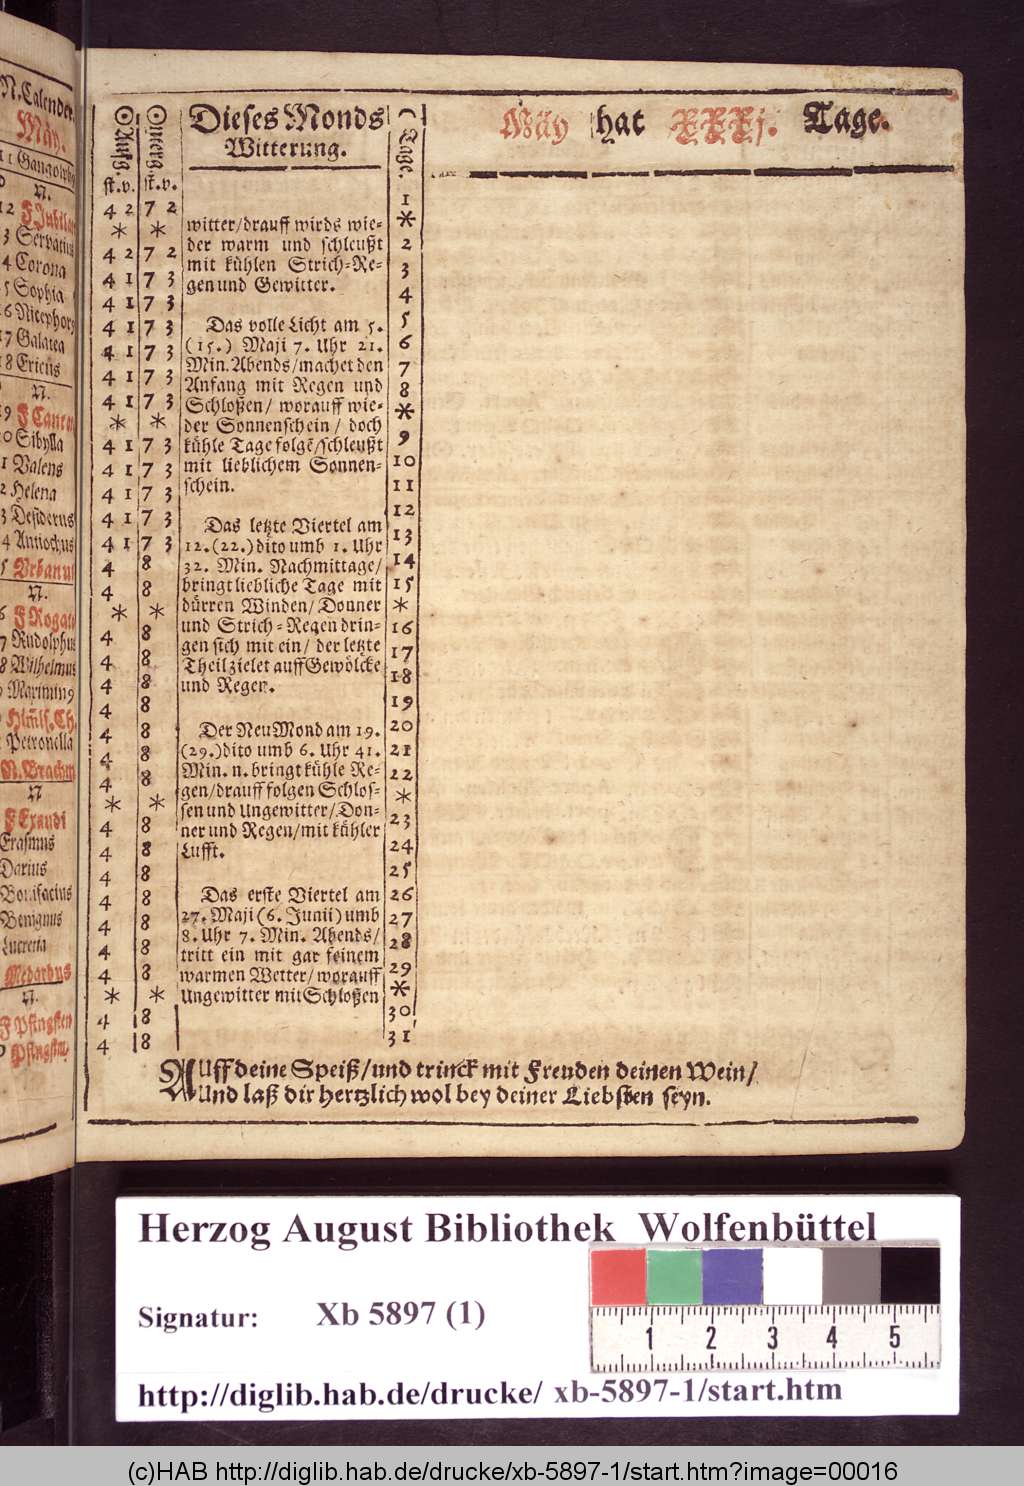 N. Calender.
Mäy.
11 Gangolph
N.
12 F Jubilat
3 Servatius
4 Corona
5 Sophia
16 Nicephorg
17 Galatea
18 Ericus
N.
19 F Cantat
20 Sibylla
1 Valens
2 Helena
3 Desiderus
4 Antiochus
5 Urbanus
N.
6 F Rogate
7 Rudolphus
8 Wilhelmus
9 Maximin9
Hiñlf. Ch.
Petronella
N. Brachm
N
F Exaudi
Erasmus
Darius
Bonifacius
Benignus
Lucretia
Medardus
N.
F Pfingsten
Pfingstm.
☉ Auffg. ☉ Niderg.
st. v. st. v.
Dieses Monds
Witterung.
Tage.
Mäy hat XXXj. Tage.
4 2 7 2
* *
4 2 7 2
4 1 7 3
4 1 7 3
4 1 7 3
4 1 7 3
4 1 7 3
4 1 7 3
* *
4 1 7 3
4 1 7 3
4 1 7 3
4 1 7 3
4 1 7 3
4 8
4 8
* *
4 8
4 8
4 8
4 8
4 8
4 8
4 8
* *
4 8
4 8
4 8
4 8
4 8
4 8
4 8
* *
4 8
4 8
witter/drauff wirds wie-
der warm und schleußt
mit kühlen Strich-Re-
gen und Gewitter.
Das volle Licht am 5.
(15.) Maji 7. Uhr 21.
Min. Abends/machet den
Anfang mit Regen und
Schloßen/ worauff wie-
der Sonnenschein/ doch
kühle Tage folgẽ/schleußt
mit lieblichem Sonnen-
schein.
Das letzte Viertel am
12. (22.) dito umb 1. Uhr
32. Min. Nachmittage/
bringt liebliche Tage mit
dürren Winden/ Donner
und Strich-Regen drin-
gen sich mit ein/ der letzte
Theil zielet auff Gewölcke
und Regen.
Der Neu Mond am 19.
(29.) dito umb 6. Uhr 41.
Min. n. bringt kühle Re-
gen/drauff folgen Schlos-
sen und Ungewitter/Don-
ner und Regen/mit kühler
Lufft.
Das erste Viertel am
27. Maji (6. Junii) umb
8. Uhr 7. Min. Abends/
tritt ein mit gar feinem
warmen Wetter/ worauff
Ungewitter mit Schloßen
1
*
2
3
4
5
6
7
8
*
9
10
11
12
13
14
15
*
16
17
18
19
20
21
22
*
23
24
25
26
27
28
29
*
30
31
AUff deine Speiß/und trinck mit Freuden deinen Wein/
Und laß dir hertzlich wol bey deiner Liebsten seyn.
Herzog August Bibliothek Wolfenbüttel
Signatur: Xb 5897 (1)
1 2 3 4 5
http://diglib.hab.de/drucke/ xb-5897-1/start.htm
(c)HAB http://diglib.hab.de/drucke/xb-5897-1/start.htm?image=00016